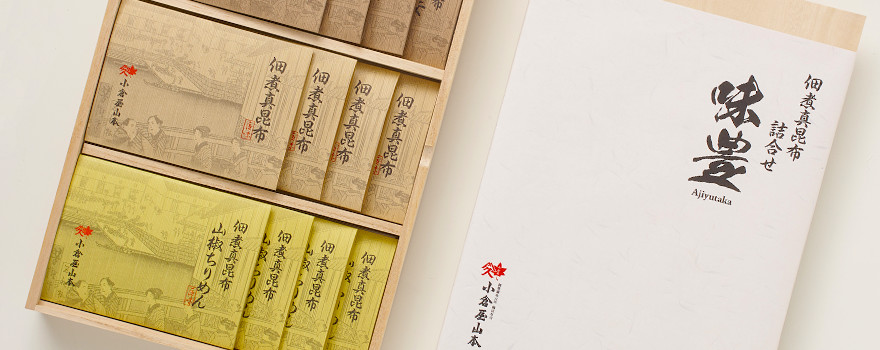 佃煮真昆布
佃煮真昆布
佃煮真昆布
佃煮真昆布
小倉屋山本
佃煮真昆布
山椒ちりめん
佃煮真昆布
山椒ちりめん
佃煮真昆布
山椒ちりめん
佃煮真昆布
山椒ちりめん
小倉屋山本
佃煮真昆布
詰合せ
味豊
Ajiyutaka
小倉屋山本